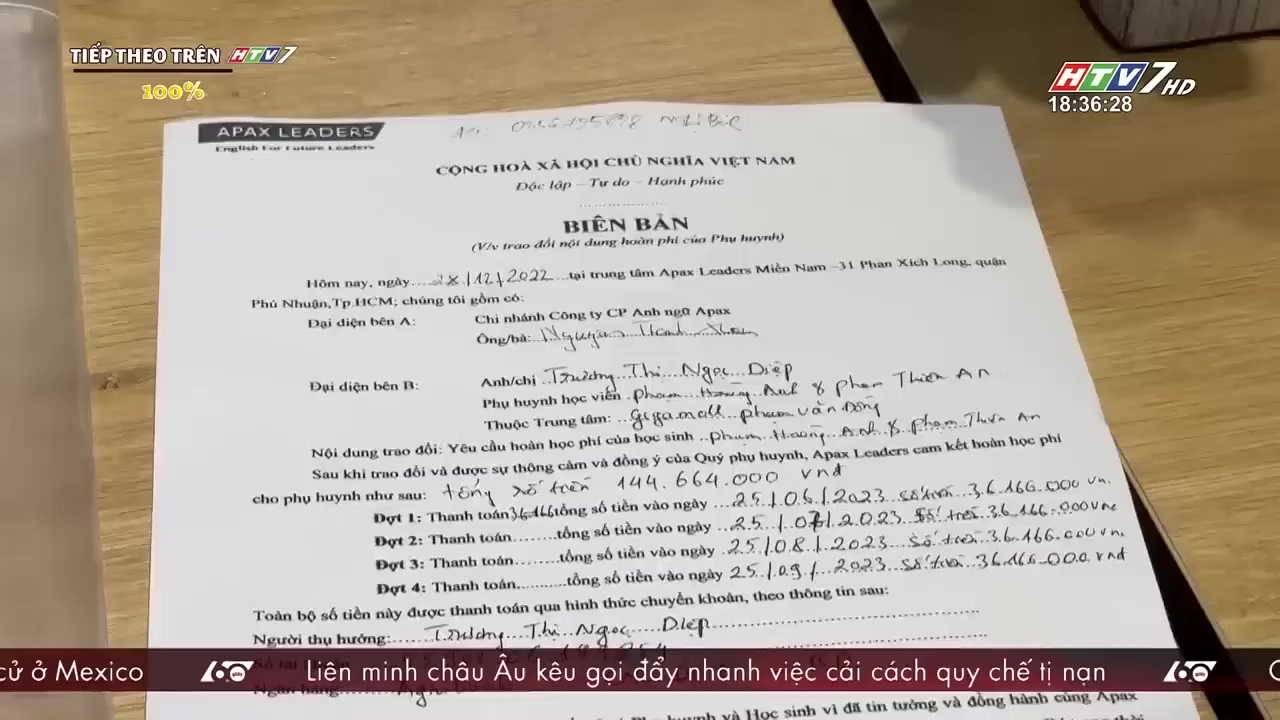 TIẾP THEO TRÊN HTV7
100%
HTV7 HD
18:36:28
APAX LEADERS
English For Future Leaders
CỘNG HOÀ XÃ HỘI CHỦ NGHĨA VIỆT NAM
Độc lập – Tự do – Hạnh phúc
BIÊN BẢN
(V/v trao đổi nội dung hoàn phí của Phụ huynh)
Hôm nay, ngày....28/12/2022...tại trung tâm Apax Leaders Miền Nam –31 Phan Xích Long, quận
Phú Nhuận,Tp.HCM; chúng tôi gồm có:
Đại diện bên A: Chi nhánh Công ty CP Anh ngữ Apax
Ông/bà:...Nguyễn Thanh
Đại diện bên B: Anh/chị ..Trương Thị Ngọc Diệp
Phụ huynh học viên .phạm Hoàng Anh & phạm Thiên An
Thuộc Trung tâm: Gigamall phạm văn Đồng
Nội dung trao đổi: Yêu cầu hoàn học phí của học sinh ..phạm Hoàng Anh & phạm Thiên An
Sau khi trao đổi và được sự thông cảm và đồng ý của Quý phụ huynh, Apax Leaders cam kết hoàn học phí
cho phụ huynh như sau: tổng số tiền 144.664.000 vnđ
Đợt 1: Thanh toán 36.166 tổng số tiền vào ngày ...25/06/2023 số tiền 36.166.000 vn.
Đợt 2: Thanh toán........tổng số tiền vào ngày ...25/07/2023 số tiền 36.166.000 vnđ
Đợt 3: Thanh toán........tổng số tiền vào ngày .25/08/2023 số tiền 36.166.000 vnđ
Đợt 4: Thanh toán..........tổng số tiền vào ngày 25/09/2023 số tiền 36.166.000 vnđ
Toàn bộ số tiền này được thanh toán qua hình thức chuyển khoản, theo thông tin sau:
Người thụ hưởng:......Trương Thị Ngọc Diệp
cử ở Mexico 60 Liên minh châu Âu kêu gọi đẩy nhanh việc cải cách quy chế tị nạn 60
Ngân hàng:
Phụ huynh và Học sinh vì đã tin tưởng và đồng hành cùng Apax